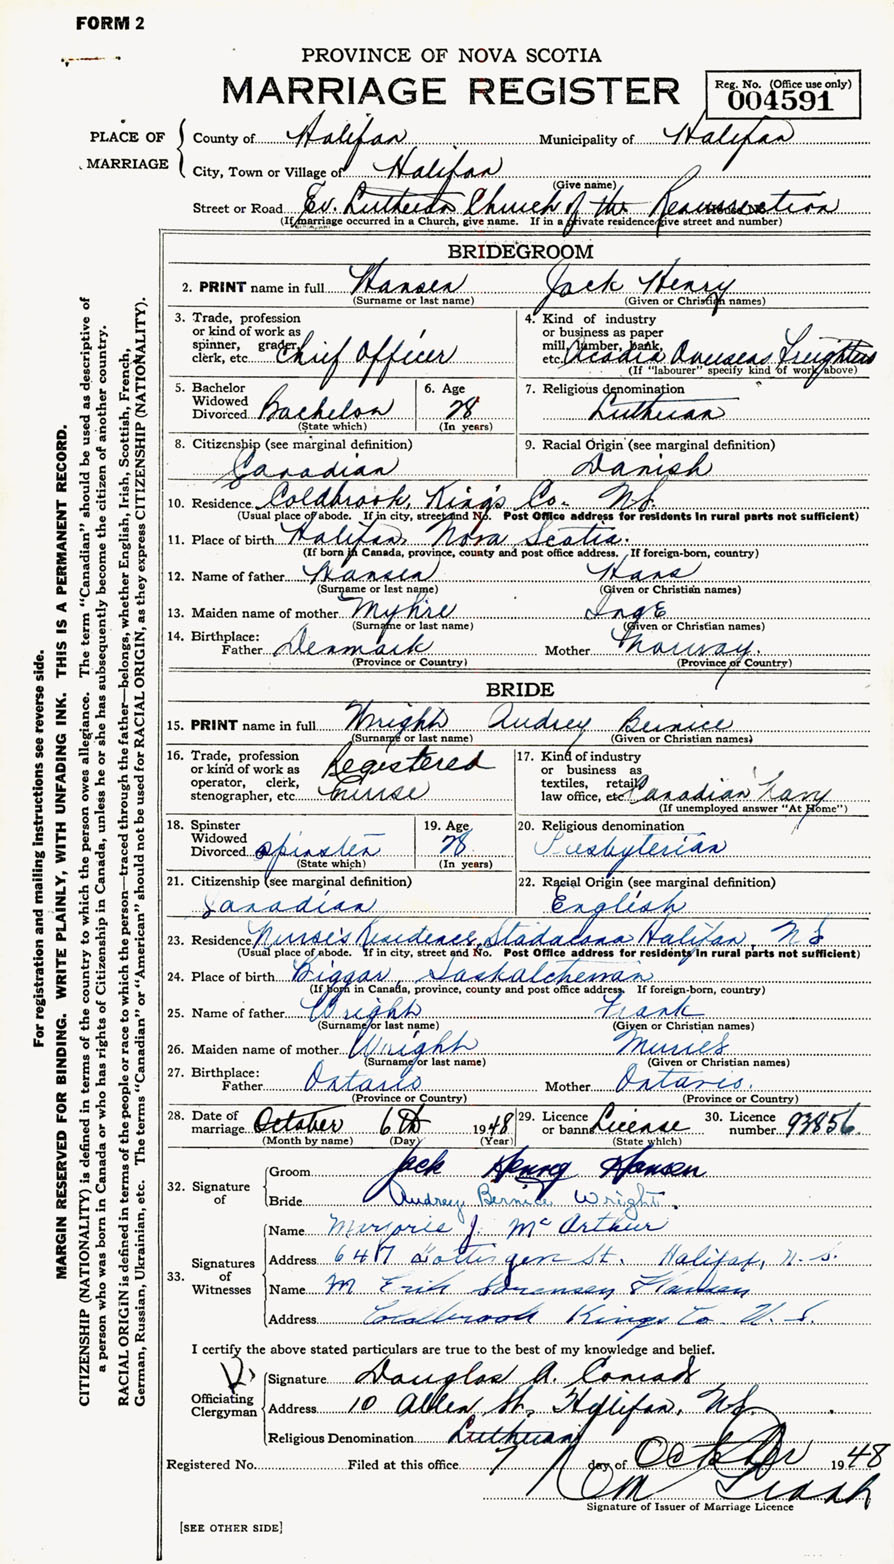 FORM 2
PROVINCE OF NOVA SCOTIA
MARRIAGE REGISTER
Reg. No. (Office use only)
004591
PLACE OF MARRIAGE
County of Halifax Municipality of Halifax
City, Town or Village of Halifax
(Give name)
Street or Road Ev. Lutheran Church of the Resurrection
(If marriage occurred in a Church, give name. If in a private residence give street and number)
BRIDEGROOM
2. PRINT name in full Hansen Jack Henry
(Surname or last name) (Given or Christian names)
3. Trade, profession or kind of work as spinner, grader, clerk, etc. Chief Officer
4. Kind of industry or business as paper mill, lumber, bank, etc. Acadia Overseas Freighters
(If "labourer" specify kind of work above)
5. Bachelor Widowed Divorced Bachelor
(State which)
6. Age 28
(In years)
7. Religious denomination Lutheran
8. Citizenship (see marginal definition) Canadian
9. Racial Origin (see marginal definition) Danish
10. Residence Coldbrook, King's Co. N.S.
(Usual place of abode. If in city, street and No. Post Office address for residents in rural parts not sufficient)
11. Place of birth Halifax Nova Scotia.
(If born in Canada, province, county and post office address. If foreign-born, country)
12. Name of father Hansen Hans
(Surname or last name) (Given or Christian names)
13. Maiden name of mother Myhre Inge
(Surname or last name) (Given or Christian names)
14. Birthplace: Father Denmark Mother Norway.
(Province or Country) (Province or Country)
BRIDE
15. PRINT name in full Wright Audrey Bernice
(Surname or last name) (Given or Christian names)
16. Trade, profession or kind of work as operator, clerk, stenographer, etc. Registered Nurse
17. Kind of industry or business as textiles, retail, law office, etc. Canadian Navy
(If unemployed answer "At Home")
18. Spinster Widowed Divorced Spinster
(State which)
19. Age 28
(In years)
20. Religious denomination Presbyterian
21. Citizenship (see marginal definition) Canadian
22. Racial Origin (see marginal definition) English
23. Residence Nurse's Residence, Stadacona Halifax, N S
(Usual place of abode. If in city, street and No. Post Office address for residents in rural parts not sufficient)
24. Place of birth Biggar, Saskatchewan
(If born in Canada, province, county and post office address. If foreign-born, country)
25. Name of father Wright Frank
(Surname or last name) (Given or Christian names)
26. Maiden name of mother Wright
(Surname or last name) (Given or Christian names)
27. Birthplace: Father Ontario Mother Ontario.
(Province or Country) (Province or Country)
28. Date of marriage October 6th 1948
(Month by name) (Day) (Year)
29. Licence or banns License
(State which)
30. Licence number 93856
32. Signature of
Groom Jack Henry Hansen
Bride Audrey Bernice Wright
33. Signatures of Witnesses
Name Marjorie J. McArthur
Address 647 Gottingen St. Halifax, N.S.
Name M Erik Sorensen Hansen
Address Coldbrook Kings Co. N.S.
I certify the above stated particulars are true to the best of my knowledge and belief.
Officiating Clergyman
Signature Douglas A. Conrad
Address 10 Allen St., Halifax, N.S.
Religious Denomination Lutheran
Registered No. Filed at this office 7 day of October 1948
Signature of Issuer of Marriage Licence
[SEE OTHER SIDE]
For registration and mailing instructions see reverse side.
MARGIN RESERVED FOR BINDING. WRITE PLAINLY, WITH UNFADING INK. THIS IS A PERMANENT RECORD.
CITIZENSHIP (NATIONALITY) is defined in terms of the country to which the person owes allegiance. The term "Canadian" should be used as descriptive of
a person who was born in Canada or who has rights of Citizenship in Canada, unless he or she has subsequently become the citizen of another country.
RACIAL ORIGIN is defined in terms of the people or race to which the person—traced through the father—belongs, whether English, Irish, Scottish, French,
German, Russian, Ukrainian, etc. The terms "Canadian" or "American" should not be used for RACIAL ORIGIN, as they express CITIZENSHIP (NATIONALITY).